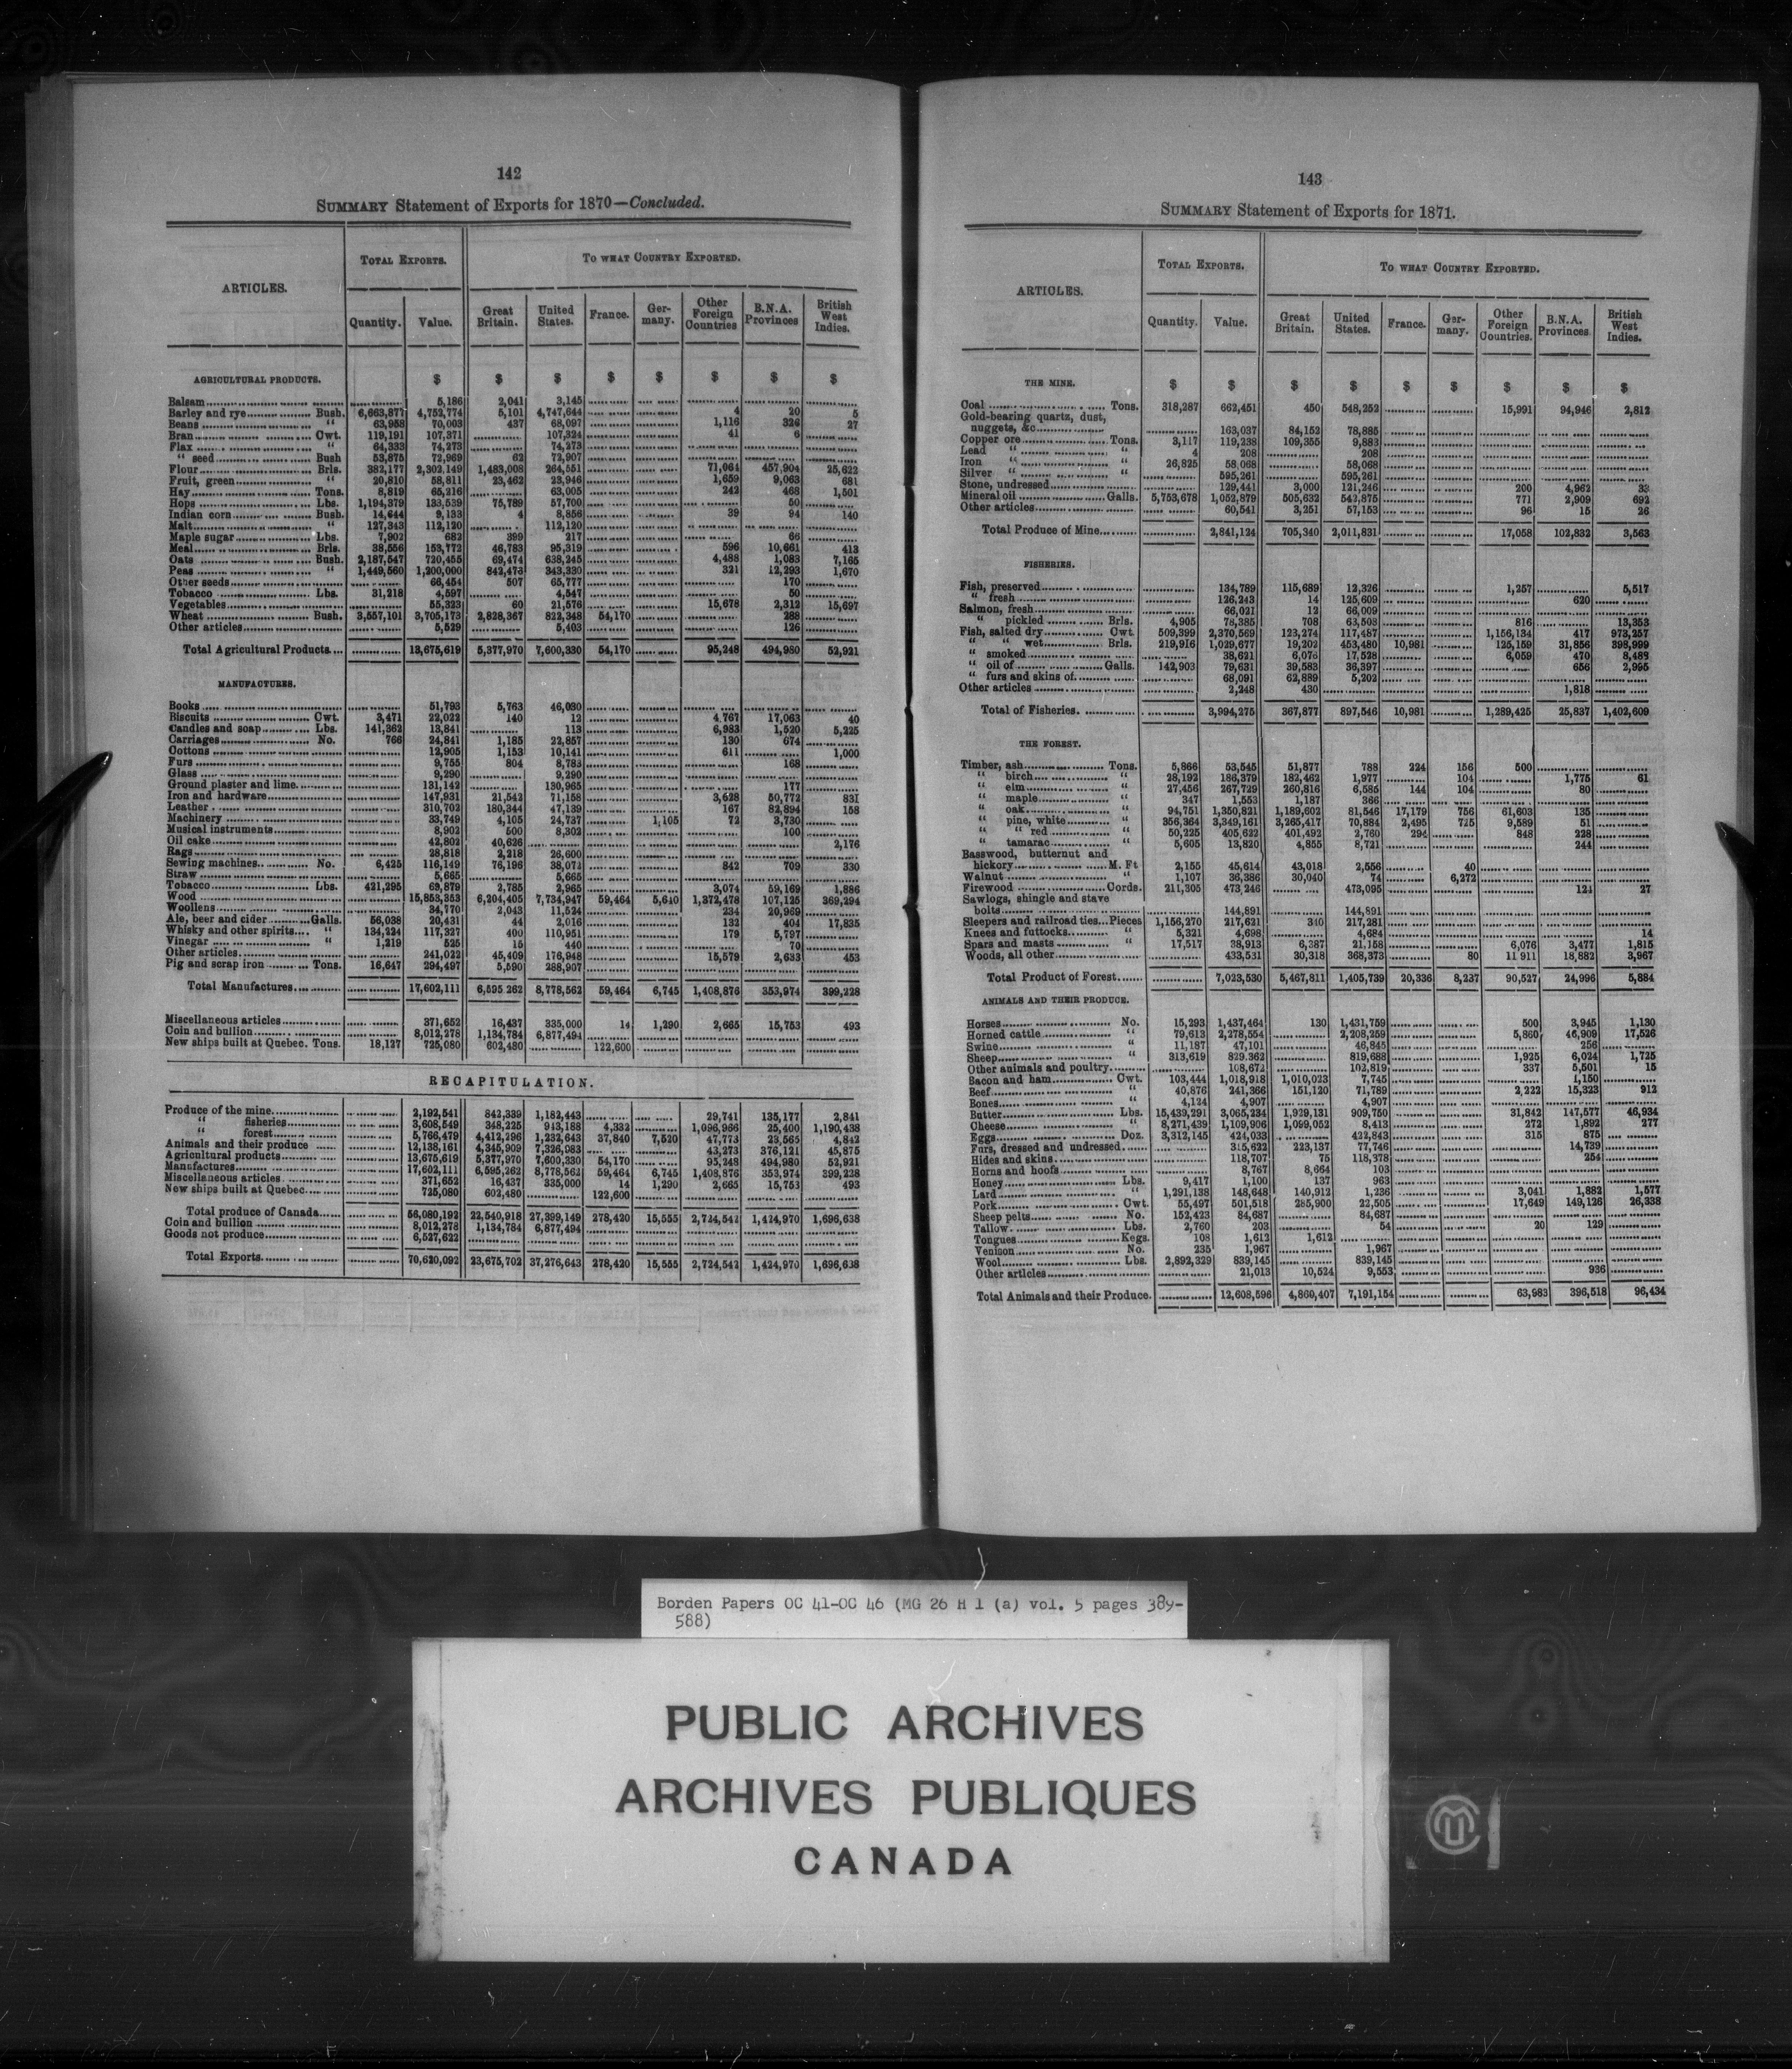 142
SUMMARY Statement of Exports for 1870—Concluded.
ARTICLES. TOTAL EXPORTS. TO WHAT COUNTRY EXPORTED.
Quantity. Value. Great Britain. United States. France. Germany. Other Foreign Countries B.N.A. Provinces British West Indies.
AGRICULTURAL PRODUCTS. $ $ $ $ $ $ $ $
Balsam 5,186 2,041 3,145
Barley and rye Bush. 6,663,877 4,752,774 5,101 4,747,644 4 20 5
Beans " 63,958 70,003 437 68,097 1,116 326 27
Bran Cwt. 119,191 107,371 107,324 41 6
Flax " 64,333 74,273 74,273
" seed Bush 53,875 72,969 62 72,907
Flour Brls. 382,177 2,302,149 1,483,008 264,551 71,064 457,904 25,622
Fruit, green " 20,810 58,811 23,462 23,946 1,659 9,063 681
Hay Tons. 8,819 65,216 63,005 242 468 1,501
Hops Lbs. 1,194,379 133,539 75,789 57,700 50
Indian corn Bush. 14,644 9,133 4 8,856 39 94 140
Malt " 127,343 112,120 112,120
Maple sugar Lbs. 7,902 682 399 217 66
Meal Brls. 38,556 153,772 46,783 95,319 596 10,661 413
Oats Bush. 2,187,547 720,455 69,474 638,245 4,488 1,083 7,165
Peas " 1,449,560 1,200,000 842,473 343,330 321 12,293 1,670
Other seeds 66,454 507 65,777 170
Tobacco Lbs. 31,218 4,597 4,547 50
Vegetables 55,323 60 21,576 15,678 2,312 15,697
Wheat Bush. 3,557,101 3,705,173 2,828,367 822,348 54,170 288
Other articles 5,529 5,403 126
Total Agricultural Products 13,675,619 5,377,970 7,600,330 54,170 95,248 494,980 52,921
MANUFACTURES.
Books 51,793 5,763 46,030
Biscuits Cwt. 3,471 22,022 140 12 4,767 17,063 40
Candles and soap Lbs. 141,362 13,841 113 6,983 1,520 5,225
Carriages No. 766 24,841 1,185 22,857 130 674
Cottons 12,905 1,153 10,141 611 1,000
Furs 9,755 804 8,783 168
Glass 9,290 9,290
Ground plaster and lime 131,142 130,965 177
Iron and hardware 147,931 21,542 71,158 3,628 50,772 831
Leather 310,702 180,344 47,139 167 82,894 158
Machinery 33,749 4,105 24,737 1,105 72 3,730
Musical instruments 8,902 500 8,302 100
Oil cake 42,802 40,626 2,176
Rags 28,818 2,218 26,600
Sewing machines No. 6,425 116,149 76,196 38,072 842 709 330
Straw 5,665 5,665
Tobacco Lbs. 421,295 69,879 2,785 2,965 3,074 59,169 1,886
Wood 15,853,353 6,204,405 7,734,947 59,464 5,640 1,372,478 107,125 369,294
Woollens 34,770 2,043 11,524 234 20,969
Ale, beer and cider Galls. 56,038 20,431 44 2,016 132 404 17,835
Whisky and other spirits " 134,224 117,327 400 110,951 179 5,797
Vinegar " 1,219 525 15 440 70
Other articles 241,022 45,409 176,948 15,579 2,633 453
Pig and scrap iron Tons. 16,647 294,497 5,590 288,907
Total Manufactures 17,602,111 6,595 262 8,778,562 59,464 6,745 1,408,876 353,974 399,228
Miscellaneous articles 371,652 16,437 335,000 14 1,290 2,665 15,753 493
Coin and bullion 8,012,278 1,134,784 6,877,494
New ships built at Quebec. Tons. 18,127 725,080 602,480 122,600
RECAPITULATION.
Produce of the mine 2,192,541 842,339 1,182,443 29,741 135,177 2,841
" fisheries 3,608,549 348,225 943,188 4,332 1,096,966 25,400 1,190,438
" forest 5,766,479 4,412,296 1,232,643 37,840 7,520 47,773 23,565 4,842
Animals and their produce 12,138,161 4,345,909 7,326,983 43,273 376,121 45,875
Agricultural products 13,675,619 5,377,970 7,600,330 54,170 95,248 494,980 52,921
Manufactures 17,602,111 6,595,262 8,778,562 59,464 6,745 1,408,876 353,974 399,228
Miscellaneous articles 371,652 16,437 335,000 14 1,290 2,665 15,753 493
New ships built at Quebec 725,080 602,480 122,600
Total produce of Canada 56,080,192 22,540,918 27,399,149 278,420 15,555 2,724,542 1,424,970 1,696,638
Coin and bullion 8,012,278 1,134,784 6,877,494
Goods not produce 6,527,622
Total Exports 70,620,092 23,675,702 37,276,643 278,420 15,555 2,724,542 1,424,970 1,696,638
143
SUMMARY Statement of Exports for 1871.
ARTICLES. TOTAL EXPORTS. TO WHAT COUNTRY EXPORTED.
Quantity. Value. Great Britain. United States. France. Germany. Other Foreign Countries. B.N.A. Provinces British West Indies.
THE MINE. $ $ $ $ $ $ $ $ $
Coal Tons. 318,287 662,451 450 548,252 15,991 94,946 2,812
Gold-bearing quartz, dust,
nuggets, &c 163,037 84,152 78,885
Copper ore Tons. 3,117 119,238 109,355 9,883
Lead " " 4 208 208
Iron " " 26,825 58,068 58,068
Silver " " 595,261 595,261
Stone, undressed 129,441 3,000 121,246 200 4,962 33
Mineral oil Galls. 5,753,678 1,052,879 505,632 542,875 771 2,909 692
Other articles 60,541 3,251 57,153 96 15 26
Total Produce of Mine 2,841,124 705,340 2,011,831 17,058 102,832 3,563
FISHERIES.
Fish, preserved 134,789 115,689 12,326 1,257 5,517
" fresh 126,243 14 125,609 620
Salmon, fresh 66,021 12 66,009
" pickled Brls. 4,905 78,385 708 63,508 816 13,353
Fish, salted dry Cwt. 509,399 2,370,569 123,274 117,487 1,156,134 417 973,257
" " wet Brls. 219,916 1,029,677 19,202 453,480 10,981 125,159 31,856 398,999
" smoked 38,621 6,076 17,528 6,059 470 8,488
" oil of Galls. 142,903 79,631 39,583 36,397 656 2,995
" furs and skins of 68,091 62,889 5,202
Other articles 2,248 430 1,818
Total of Fisheries 3,994,275 367,877 897,546 10,981 1,289,425 25,837 1,402,609
THE FOREST.
Timber, ash Tons. 5,866 53,545 51,877 788 224 156 500
" birch " 28,192 186,379 182,462 1,977 104 1,775 61
" elm " 27,456 267,729 260,816 6,585 144 104 80
" maple " 347 1,553 1,187 366
" oak " 94,751 1,350,821 1,189,602 81,546 17,179 756 61,603 135
" pine, white " 356,364 3,349,161 3,265,417 70,884 2,495 725 9,589 51
" " red " 50,225 405,622 401,492 2,760 294 848 228
" tamarac " 5,605 13,820 4,855 8,721 244
Basswood, butternut and
hickory M. Ft 2,155 45,614 43,018 2,556 40
Walnut " 1,107 36,386 30,040 74 6,272
Firewood Cords. 211,305 473,246 473,095 124 27
Sawlogs, shingle and stave
bolts 144,891 144,891
Sleepers and railroad ties Pieces 1,156,270 217,621 340 217,281
Knees and futtocks " 5,321 4,698 4,684 14
Spars and masts " 17,517 38,913 6,387 21,158 6,076 3,477 1,815
Woods, all other 433,531 30,318 368,373 80 11 911 18,882 3,967
Total Product of Forest 7,023,530 5,467,811 1,405,739 20,336 8,237 90,527 24,996 5,884
ANIMALS AND THEIR PRODUCE.
Horses No. 15,293 1,437,464 130 1,431,759 500 3,945 1,130
Horned cattle " 79,613 2,278,554 2,208,259 5,860 46,909 17,526
Swine " 11,187 47,101 46,845 256
Sheep " 313,619 829.362 819,688 1,925 6,024 1,725
Other animals and poultry 108,672 102,819 337 5,501 15
Bacon and ham Cwt. 103,444 1,018,918 1,010,023 7,745 1,150
Beef " 40,876 241,366 151,120 71,789 2,222 15,323 912
Bones " 4,124 4,907 4,907
Butter Lbs. 15,439,291 3,065,234 1,929,131 909,750 31,842 147,577 46,934
Cheese " 8,271,439 1,109,906 1,099,052 8,413 272 1,892 277
Eggs Doz. 3,312,145 424,033 422,843 315 875
Furs, dressed and undressed 315,622 223,137 77,746 14,739
Hides and skins 118,707 75 118,378 254
Horns and hoofs 8,767 8,664 103
Honey Lbs. 9,417 1,100 137 963
Lard " 1,291,138 148,648 140,912 1,236 3,041 1,882 1,577
Pork Cwt. 55,497 501,518 285,900 22,505 17,649 149,126 26,338
Sheep pelts No. 152,423 84,687 84,687
Tallow Lbs. 2,760 203 54 20 129
Tongues Kegs. 108 1,612 1,612
Venison No. 235 1,967 1,967
Wool Lbs. 2,892,329 839,145 839,145
Other articles 21,013 10,524 9,553 936
Total Animals and their Produce. 12,608,596 4,860,407 7,191,154 63,983 396,518 96,434
Borden Papers OC 41-OC 46 (MG 26 H 1 (a) vol. 5 pages 389-
588)
PUBLIC ARCHIVES
ARCHIVES PUBLIQUES
CANADA